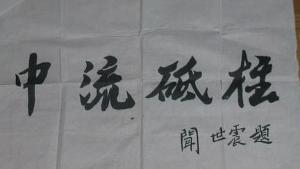 中流砥柱
聞世震題